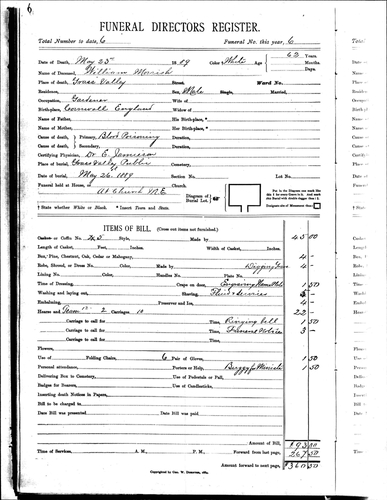 6
FUNERAL DIRECTORS REGISTER.
Total Number to date, 6 Funeral No. this year, 6
Date of Death, May 25th 1889 Color † White Age 62 Years
Months
Days.
Name of Deceased, William
Place of Death, Grass Valley Street, Ward No.
Residence, Sex, Male Single, Married,
Occupation, Gardener Wife of
Birthplace, Cornwall England Widow of
Name of Father, His Birthplace, *
Name of Mother, Her Birthplace, *
Cause of death, Primary, Blood Poisoning Duration,
Cause of death, Secondary, Duration,
Certifying Physician, Dr E. Jamieson
Place of burial, Grass Valley Public Cemetery,
Date of burial, May 26th 1889 Section No. Lot No.
Funeral held at House, Church,
At Church M.E.
Diagram of Burial Lot,
† State whether White or Black. * Insert Town and State.
ITEMS OF BILL. (Cross out items not furnished.)
Casket or Coffin No. Style, Made by 45 00
Length of Casket, Feet, Inches. Width of Casket, Inches.
Box, Pine, Chestnut, Oak, Cedar or Mahogany, 4 -
Robe, Shroud, or Dress No. Color, Made by Digging Grave 4 -
Lining No. Handles No. Plate No.
Time of Dressing, Crape on door, Engraving Name Plate 1 50
Washing and laying out, Shaving, Fluid & Services 5 -
Embalming, Preserver and Ice, 4 -
Hearse and Team 12- 2 Carriages 10 22 -
Carriage to call for Time, Ringing bell 1 50
Carriage to call for Time, Funeral Notices 3 -
Carriage to call for Time,
Flowers,
Use of Folding Chairs, 6 Pair of Gloves, 1 50
Personal attendance, Porters or Help, Buggy for Minister 1 50
Delivering Box to Cemetery, Use of Pedestals or Pall,
Badges for Bearers, Use of Candlesticks,
Inserting death Notices in Papers,
Bill to be charged to
Date Bill was presented Date Bill was paid,
Amount of Bill, $ 93 00
Time of Services, A. M., P. M. Forward from last page, 267 50
Amount forward to next page, $ 360 50